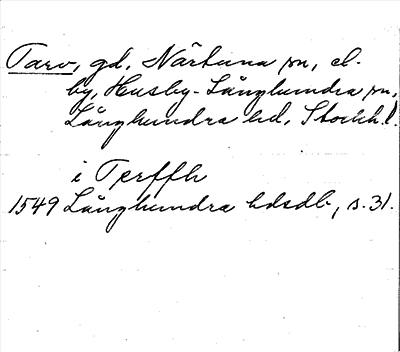 Tarv, gd, Närtuna sn, el.
by, Husby-Långhundra sn,
Långhundra hd, Stockh. l.
i Terffh
1549 Långhundra hdsdb, s. 31.